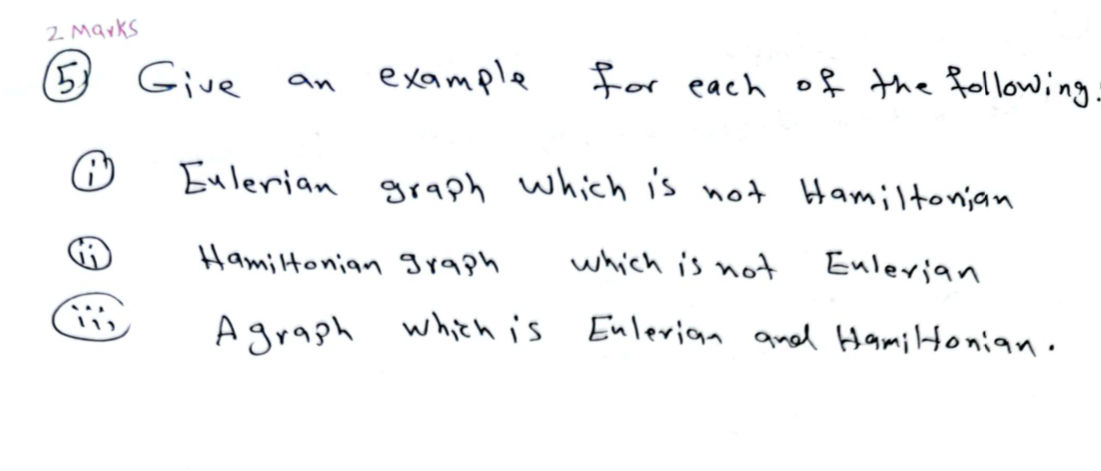 2 Marks
⑤ Give an example for each of the following:
ⓘ Eulerian graph which is not Hamiltonian
ⓘⓘ Hamiltonian graph which is not Eulerian
ⓘⓘⓘ A graph which is Eulerian and Hamiltonian.